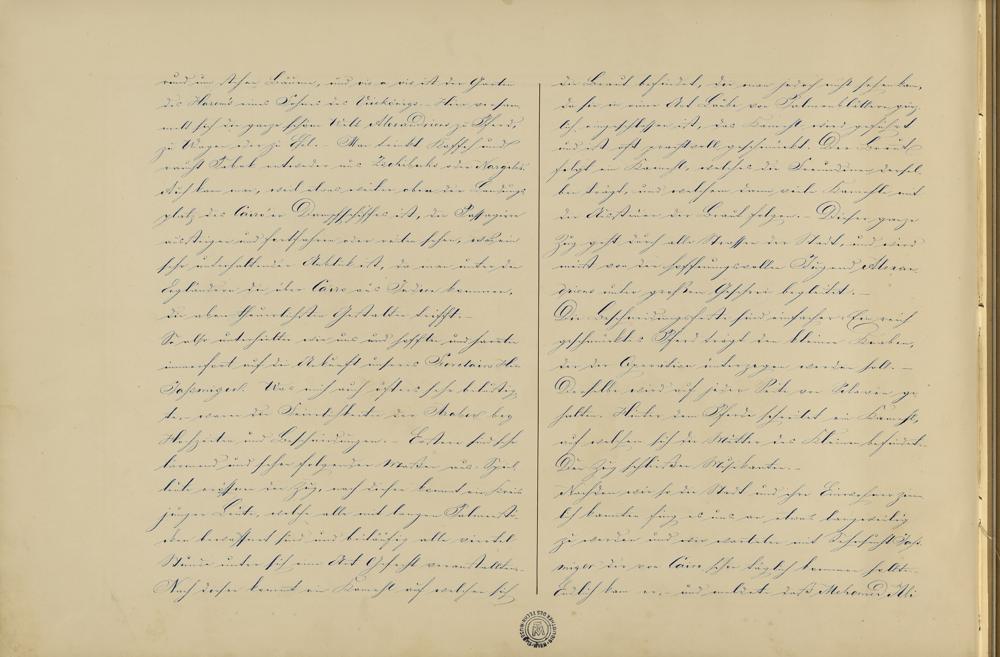 rund um stehen Bäume, und vis a vis ist der Garten
des Harems eines Sohns des Vicekönigs. – Hier versam
melt sich die ganze schöne Welt Alexandriens zu Pferd,
zu Wagen oder zu Esel. – Man trinkt Kaffeh und
raucht Tabak entweder aus Tschibuks oder Nargiles.
Auch kan man, weil etwas weiter oben der Landungs
platz des Cairo'er Dampfschiffes ist, die Passagire
aussteigen und fortfahren oder reiten sehen, was ein
sehr unterhaltender Anblik ist, da man unter den
Engländern die über Cairo aus Indien kommen,
die aller Gestalten trifft. –
So also unterhielten wir uns und hofften und harrten
immerfort auf die Ankunft unseres Secretairs Hn
Was mich auch öfters sehr belustig
te, waren die Feierlichkeiten der Araber bey
Hochzeiten und Beschneidungen. – Erstere sind sehr
lärmend und sehen folgender Maßen aus. Spiel
leute eröffnen den Zug, nach diesen kommt ein Kreis
junger Leute, welche alle mit langen Palmenstö
cken bewaffnet sind und beiläufig alle viertel
Stunde unter sich eine Art Gefecht veranstallten.
Nach diesen kommt ein Kameehl auf welchen sich
die Braut befindet, die man jedoch nicht sehen kan,
da sie in einer Art Laube von Palmenblättern gänz
lich eingeschlossen ist, das Kameehl wird geführt
und ist oft prachtvoll geschmückt. Der Braut
folgt ein Kameehl, welches die Freundinen dersel
ben trägt, und welchem dann viele Kameehle mit
der Aussteuer der Braut folgen. – Dieser ganze
Zug geht durch alle Strassen der Stadt, und wird
meist von der hoffnungsvollen Jugend Alexan
driens unter großem Geschrei begleitet. –
Die Beschneidungsfeste sind einfacher. Ein reich
geschmücktes Pferd trägt den kleinen Knaben,
der der Operation unterzogen werden soll. –
Derselbe wird auf jeder Seite von Sclaven ge
halten. Hinter dem Pferde schreitet ein Kameehl,
auf welchem sich die Mutter des Kleinen befindet.
Den Zug schließen Musikanten. –
Nachdem wir so die Stadt und ihre Einwohner ziem
lich kannten fing es uns an etwas langweilig
zu werden und wir warteten mit Sehnsucht
der von Cairo schon täglich kommen sollte.
Endlich kam er, – und meldete daß Mehemed Ali